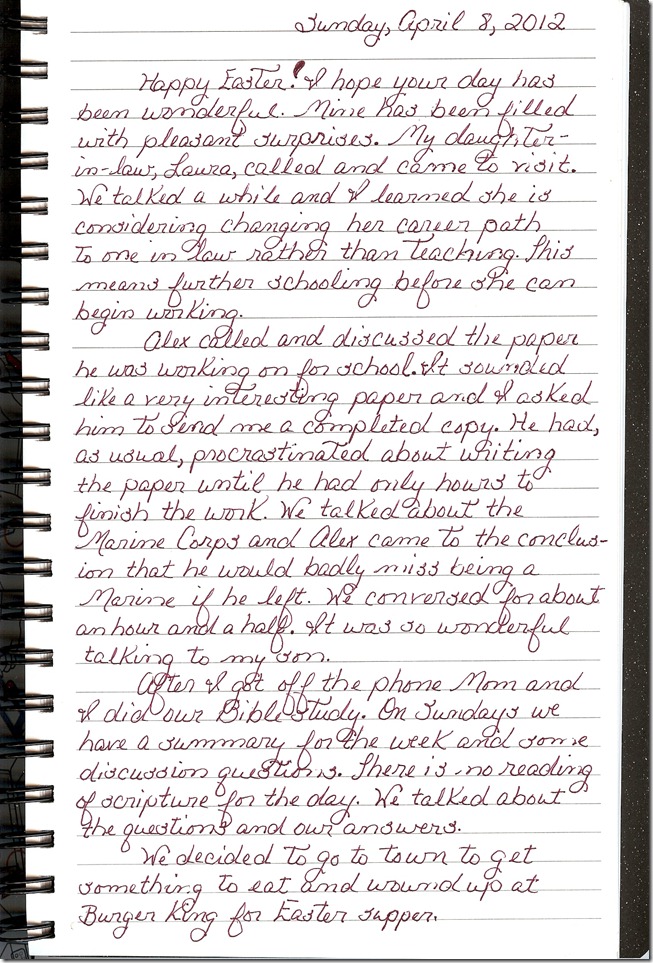 Sunday, April 8, 2012
Happy Easter! I hope your day has
been wonderful. Mine has been filled
with pleasant surprises. My daughter-
in-law, Laura, called and came to visit.
We talked a while and I learned she is
considering changing her career path
to one in law rather than teaching. This
means further schooling before she can
begin working.
Alex called and discussed the paper
he was working on for school. It sounded
like a very interesting paper and I asked
him to send me a completed copy. He had,
as usual, procrastinated about writing
the paper until he had only hours to
finish the work. We talked about the
Marine Corps and Alex came to the conclus-
ion that he would badly miss being a
Marine if he left. We conversed for about
an hour and a half. It was so wonderful
talking to my son.
After I got off the phone Mom and
I did our Bible Study. On Sundays we
have a summary for the week and some
discussion questions. There is no reading
of scripture for the day. We talked about
the questions and our answers.
We decided to go to town to get
something to eat and wound up at
Burger King for Easter supper.